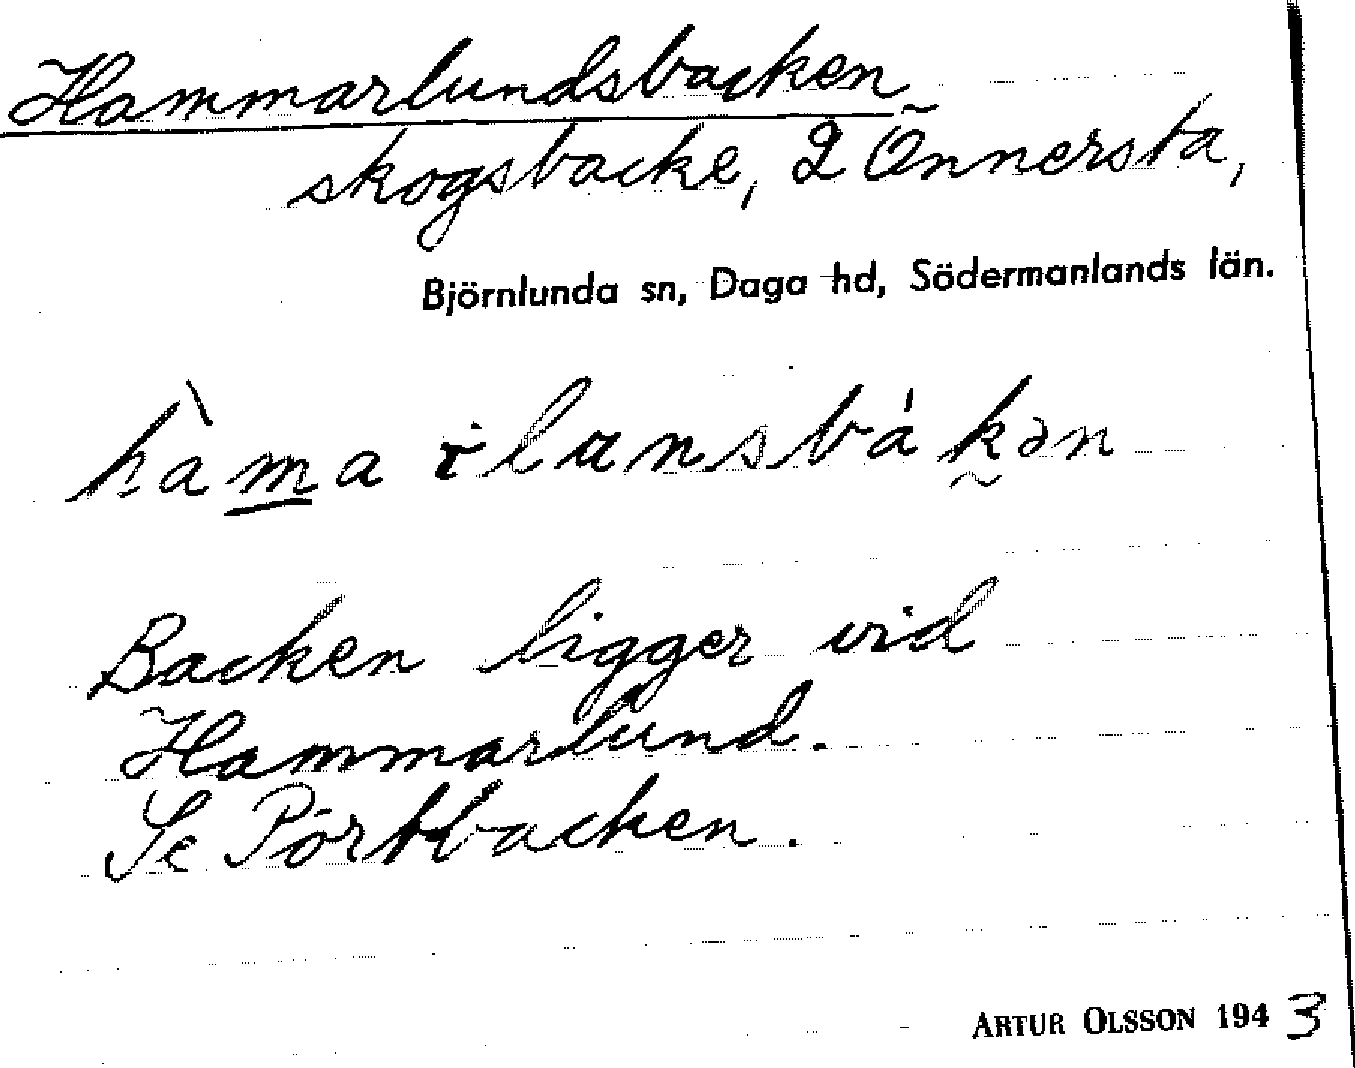 Hammarlundsbacken
skogsbacke, 2 Önnersta,
Björnlunda sn, Daga hd, Södermanlands län.
hàmaṙlunsbákən
Backen ligger vid
Hammarlund.
Se Pörtbacken.
ARTUR OLSSON 1943